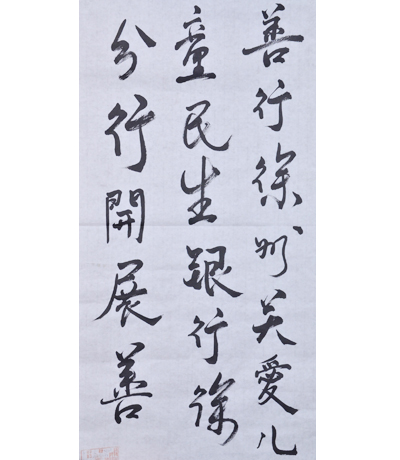 善行徐州关愛儿
童民生银行徐
分行開展善